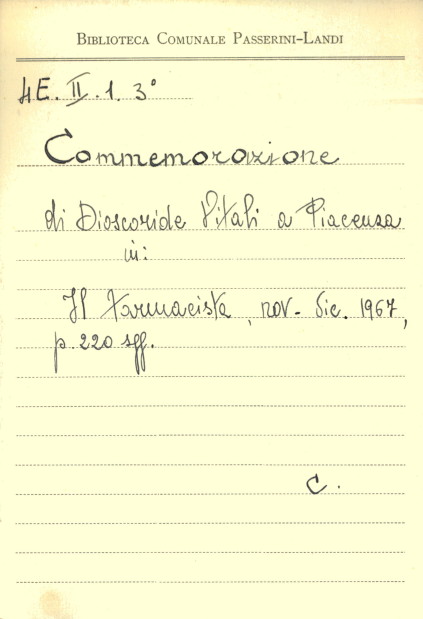 BIBLIOTECA COMUNALE PASSERINI-LANDI
4E. II. 1. 3°
Commemorazione
di Dioscoride Vitali a Piacenza
in:
Il Farmacista, nov.-dic. 1967,
p. 220 sgg.
C.